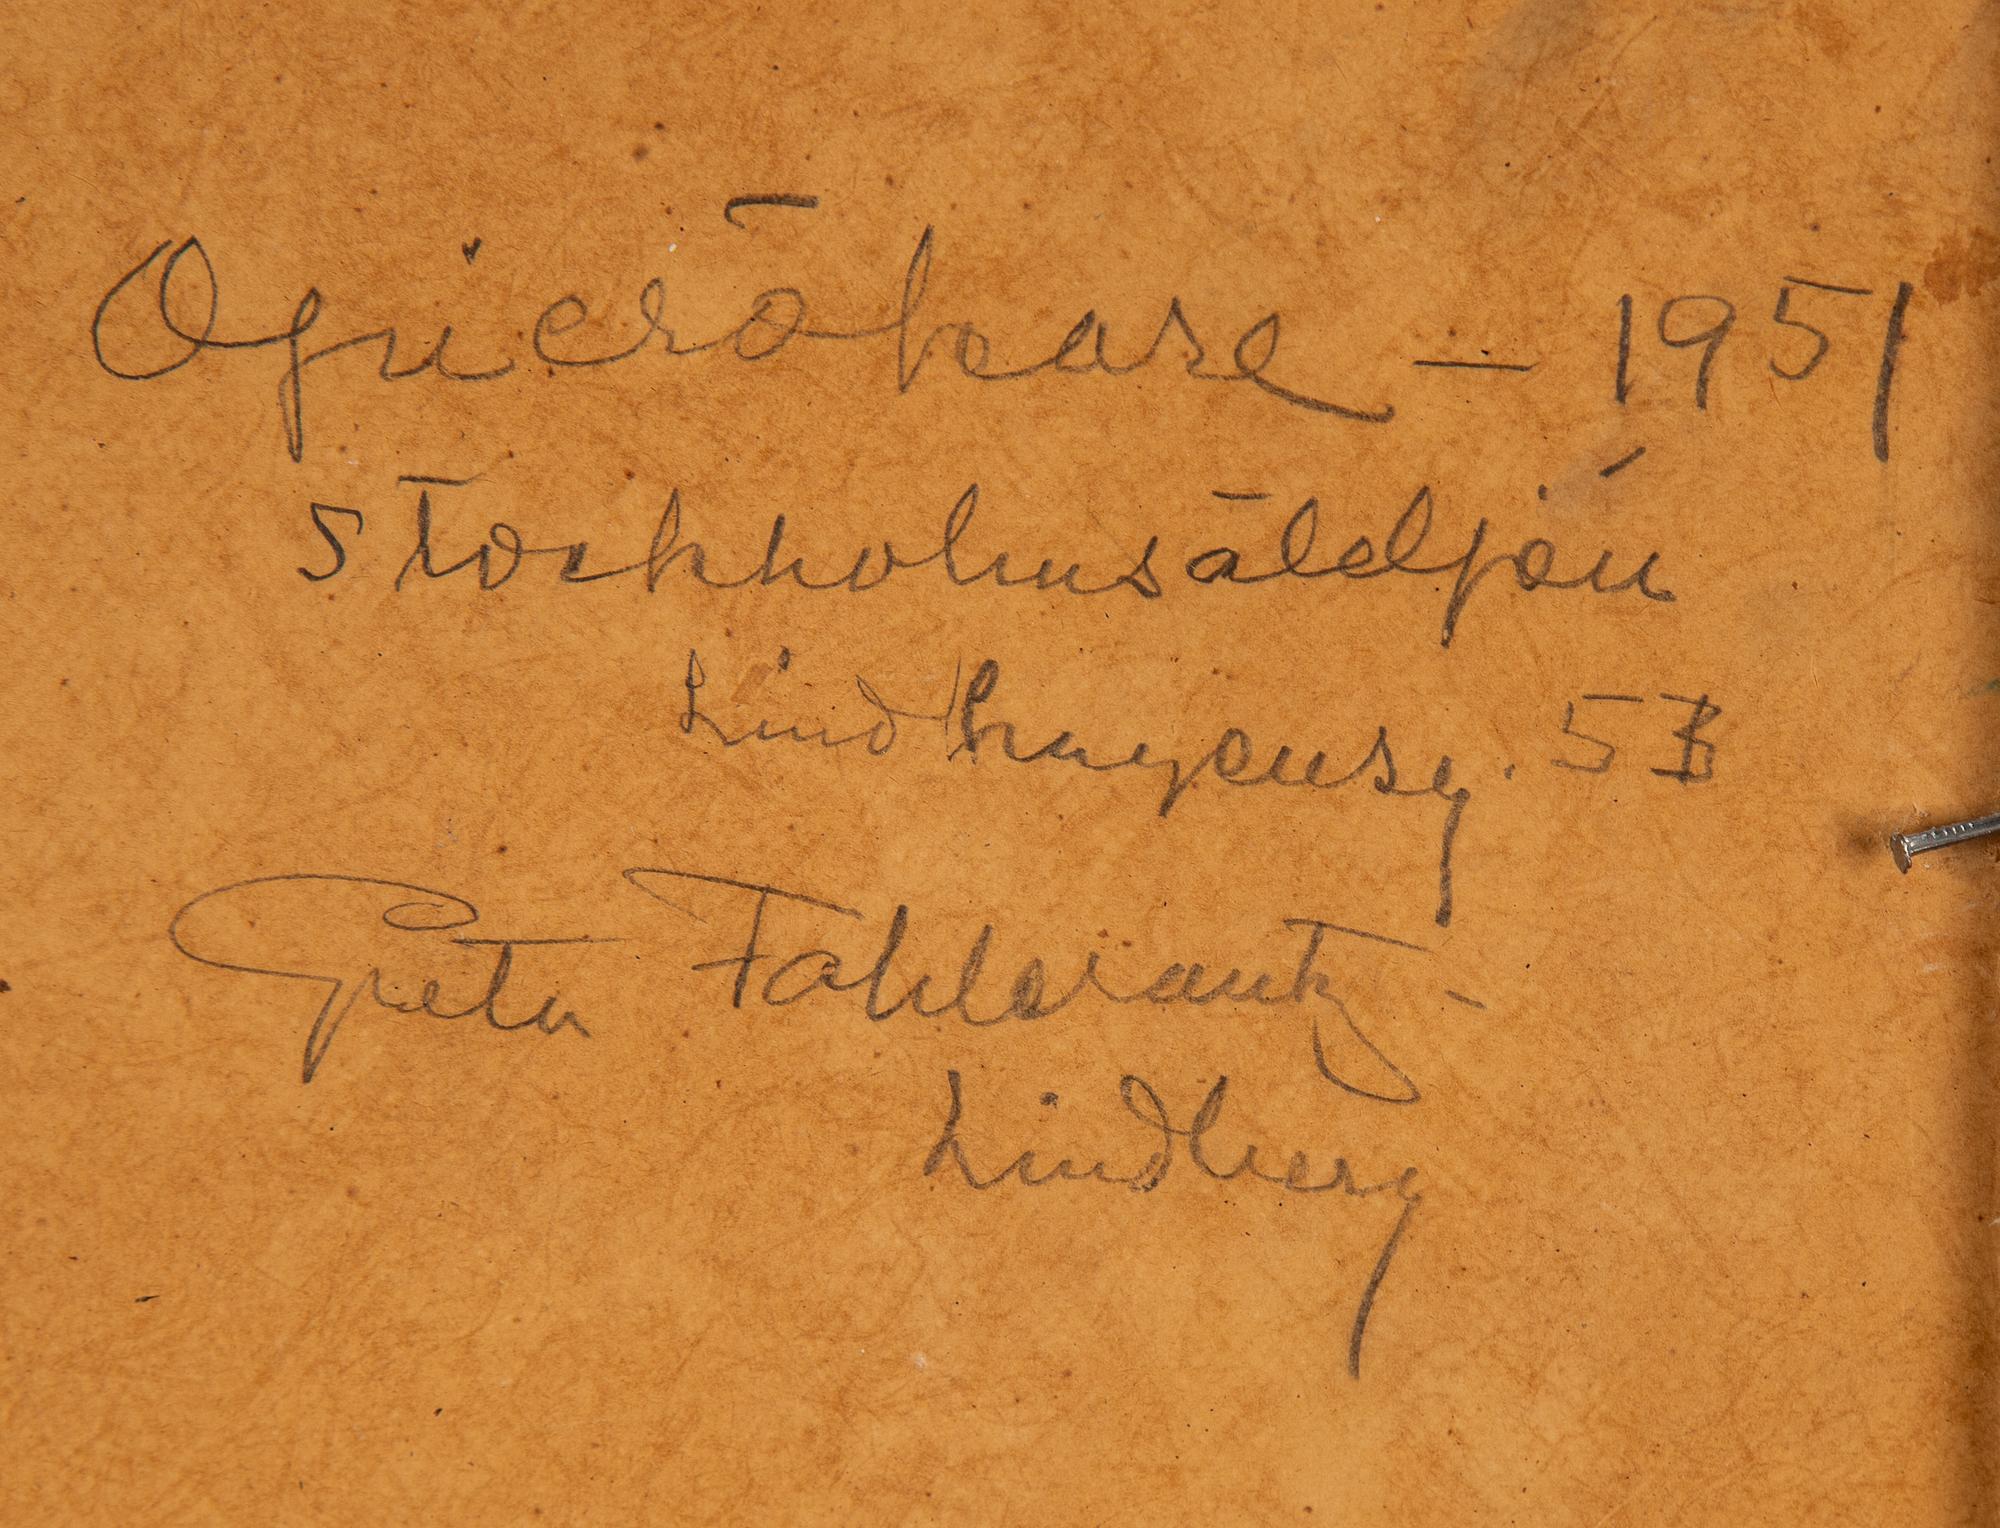 Opierökare — 1951
Stockholmsäldjón
Lindhagensg. 53
Greta Fahlcrantz -
Lindberg